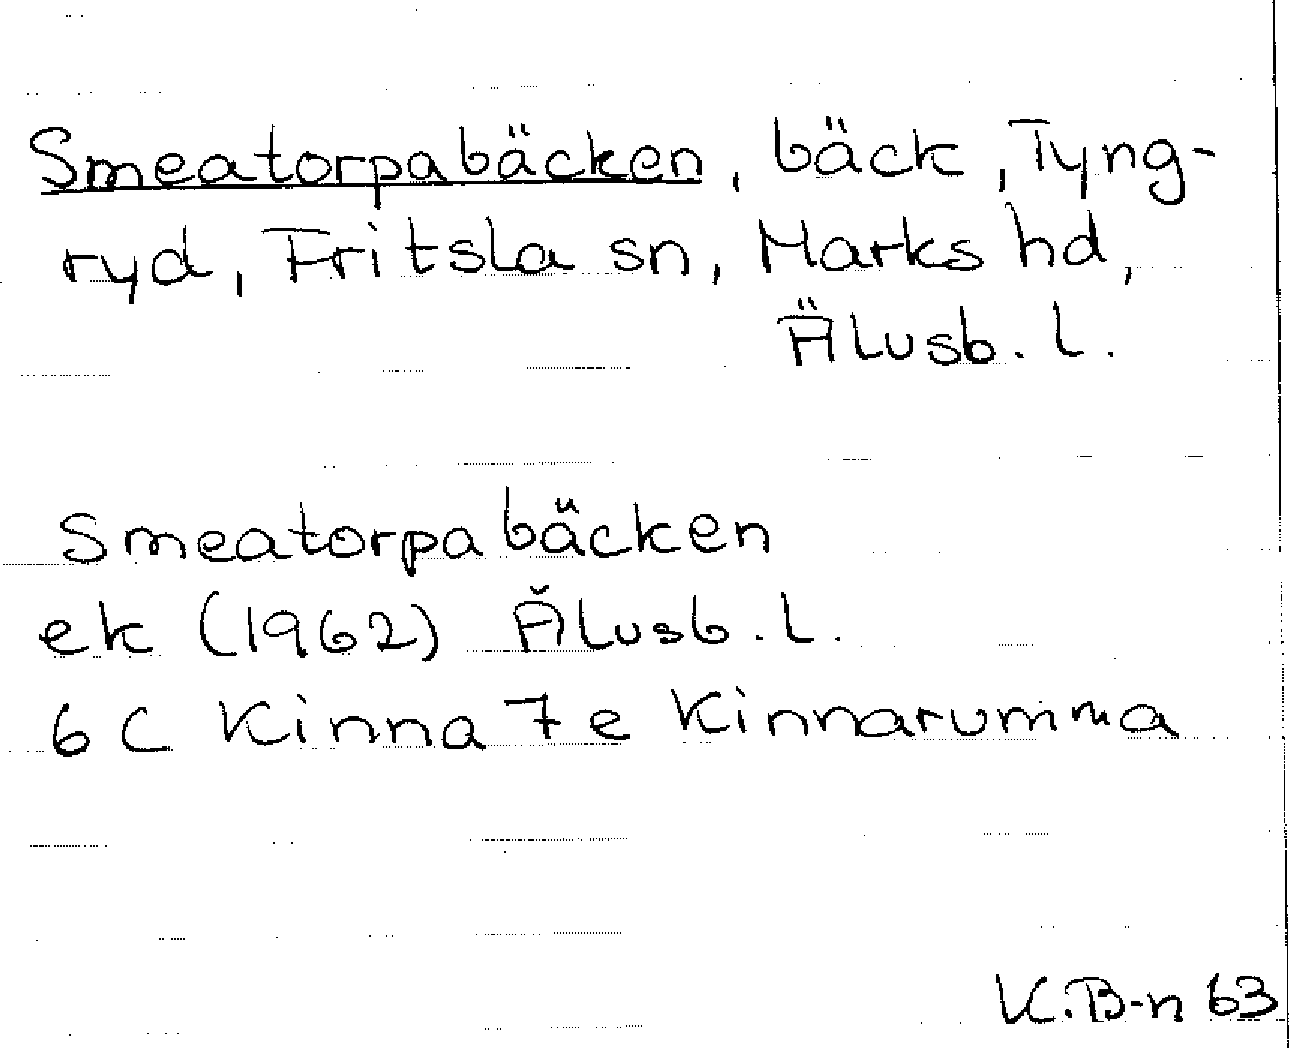 Smeatorpabäcken, bäck, Tyng-
ryd, Fritsla sn, Marks hd,
Älvsb. l.
Smeatorpabäcken
ek (1962) Älvsb. l.
6 C Kinna 7 e Kinnarumma
K.B-n 63